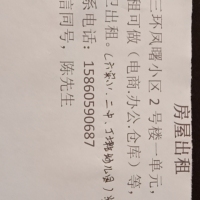 房屋出租
三环凤曙小区2号楼一单元,
租可做(电商.办公.仓库)等,
出租。二中.幼儿园)
系电话:15860590687
信同号,陈先生